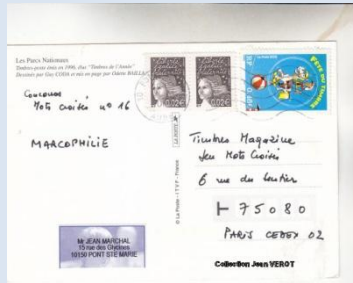 Les Parcs Nationaux
Timbres-poste émis en 1996, élus "Timbres de l'Année"
Dessinés par Guy CODA et mis en page par Odette BAILLAIS
Concours
Mots croisés n° 16
MARCOPHILIE
Mr JEAN MARCHAL
15 rue des Glycines
10150 PONT STE MARIE
© La Poste - I T V F - France
LA POSTE
0,02€
0,02€
FÊTE DU TIMBRE
Timbres Magazine
Jeu Mots Croisés
6 rue du Sentier
75080
PARIS CEDEX 02
Collection Jean VEROT